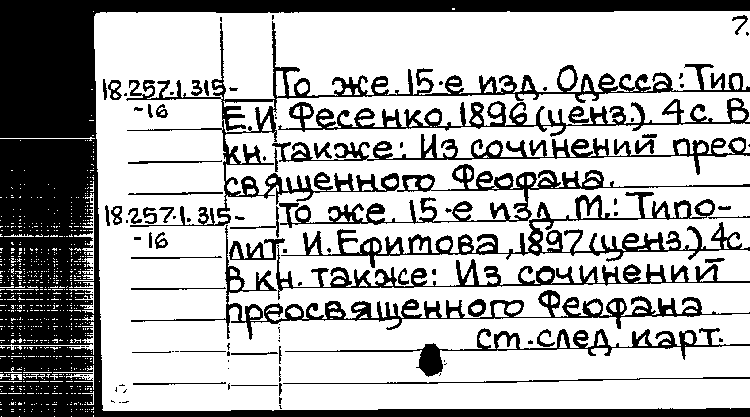 7.
18.257.1.315- То же. 15-е изд. Одесса: Тип.
-16 Е.И. Фесенко, 1896 (ценз.). 4 с. В
кн. также: Из сочинений прео-
священного Феофана.
18.257.1.315- То же. 15-е изд. М.: Типо-
-16 лит. И. Ефимова, 1897 (ценз.). 4с.
В кн. также: Из сочинений
преосвященного Феофана.
см. след. карт.